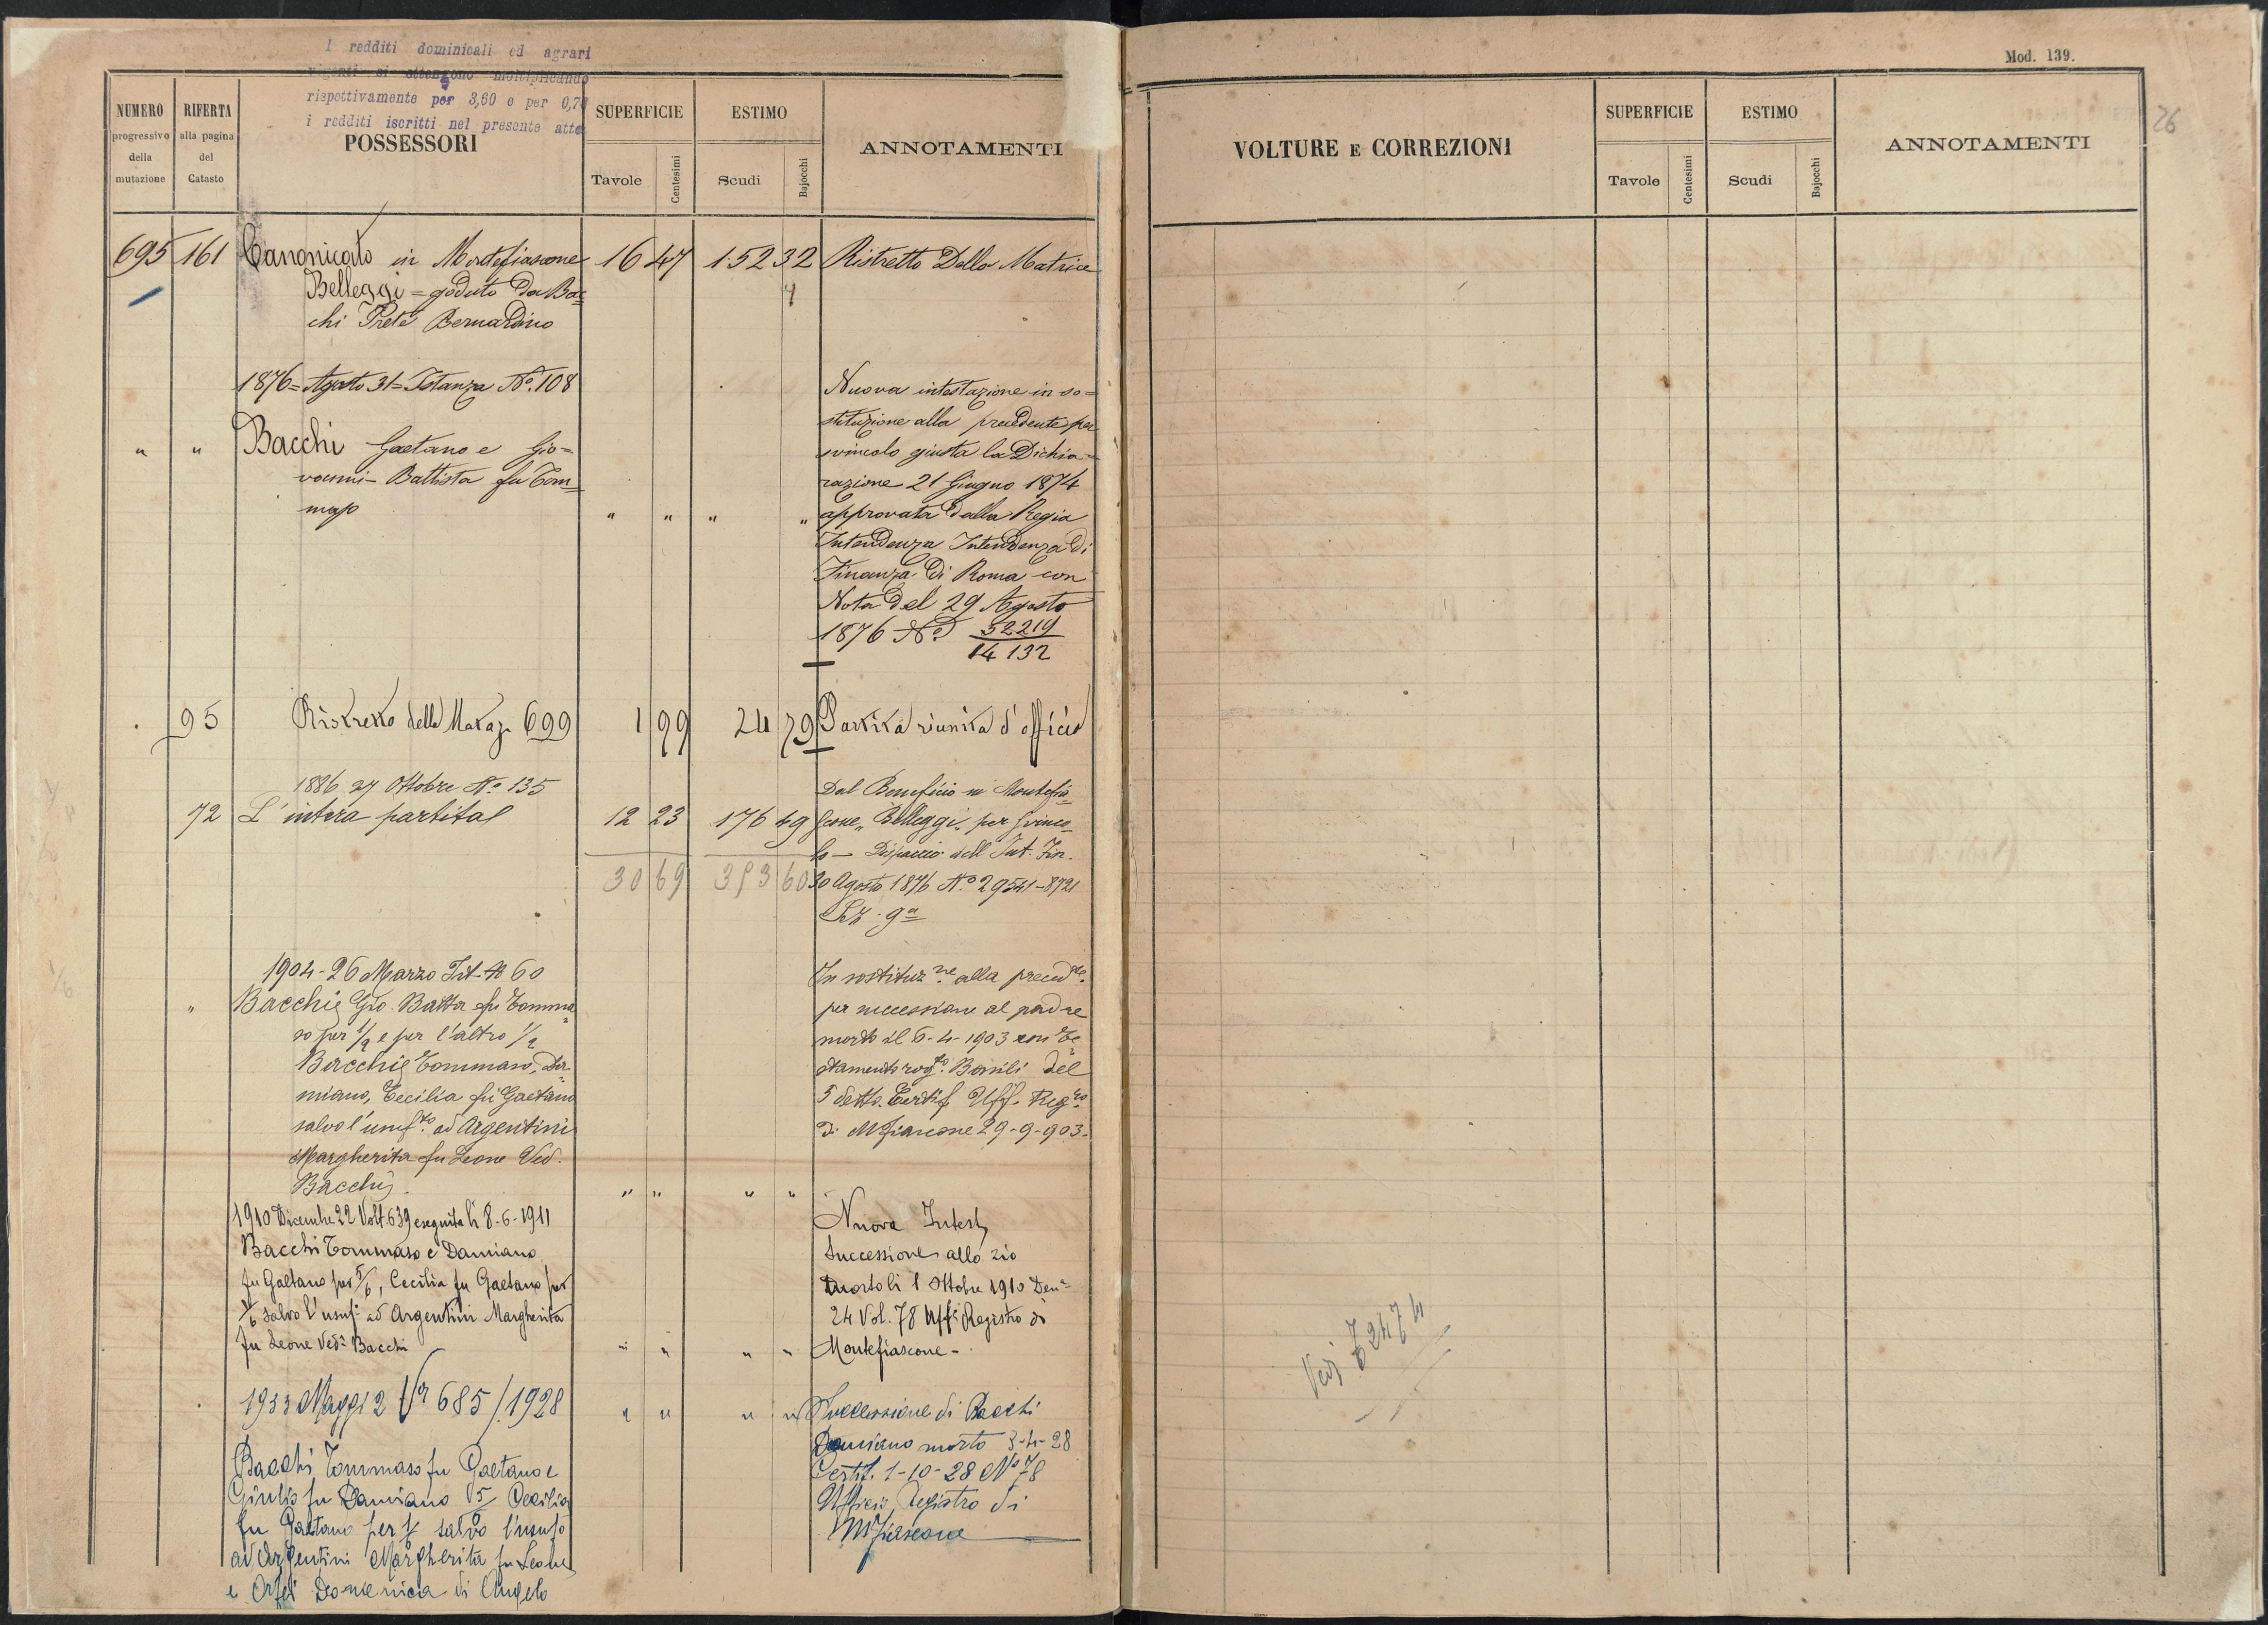 I redditi dominicali ed agrari
vigenti si ottengono moltiplicando
rispettivamente per 3,60 e per 0,70
i redditi iscritti nel presente atto
NUMERO
progressivo
della
mutazione
RIFERTA
alla pagina
del
Catasto
POSSESSORI
SUPERFICIE
Tavole
Centesimi
ESTIMO
Scudi
Bajocchi
ANNOTAMENTI
695 161 Canonicato in Montefiascone 16 47 152 32 Ristretto Della Matrice
Belleggi = goduto Da Bac=
chi Prete Bernardino
1876 = Agosto 31 = Istanza N.º 108
" " Bacchi Gaetano e Gio=
vanni-Battista fu Tom=
maso " " " "
Nuova intestazione in so=
stituzione alla precedente per
svincolo giusta la Dichia=
razione 21 Giugno 1874
approvata dalla Regia
Intendenza Intendenza Di
Finanza Di Roma con
Nota Del 29 Agosto
1876 Nº 52219
14132
95 Ristretto della Mata 699 1 99 24 79 Partita riunita d'officio
1886 27 Ottobre Nº 135
72 L'intera partita 12 23 176 49
30 69 353 60
Dal Beneficio in Montefia=
scone "Belleggi" per svinco=
lo - Dispaccio dell'Int. Fin.
30 Agosto 1876 Nº 29541-8721
1904 - 26 Marzo Ist. Nº 60
" Bacchi Gio. Batta fu Tomma=
so per 1/2 e per l'altro 1/2
Bacchi Tommaso, Da=
miano, Cecilia fu Gaetano
salvo l'usuf.to ad Argentini
Margherita fu Leone Ved.
Bacchi. " " " "
In sostituz.ne alla preced.te
per successione al padre
morto il 6-4-1903 con Te=
stamento rog.to Bonili del
5 detto. Certif. Uff. Reg.ro
di Mfiascone 29-9-903.
1910 Dicembre 22 Volt. 639 eseguita li 8-6-1911
Bacchi Tommaso e Damiano
fu Gaetano per 5/6, Cecilia fu Gaetano per
1/6 salvo l'usuf. ad Argentini Margherita
fu Leone Ved.a Bacchi " " " "
Nuova Intest.
Successione allo zio
morto li 1 Ottobre 1910 Den.
24 Vol. 78 Uff. Registro di
Montefiascone -
1933 Maggi 2 Vª 685/1928 " " " "
Bacchi Tommaso fu Gaetano e
Giulio fu Damiano 5/6 Cecilia
fu Gaetano per 1/6 salvo l'usufº
ad Argentini Margherita fu Leone
e Orfei Domenica di Angelo
Successione di Bacchi
Damiano morto 3-4-28
Certif. 1-10-28 Nº 78
Ufficio Registro di
Mfiascone
Mod. 139.
26
VOLTURE E CORREZIONI
SUPERFICIE
Tavole
Centesimi
ESTIMO
Scudi
Bajocchi
ANNOTAMENTI